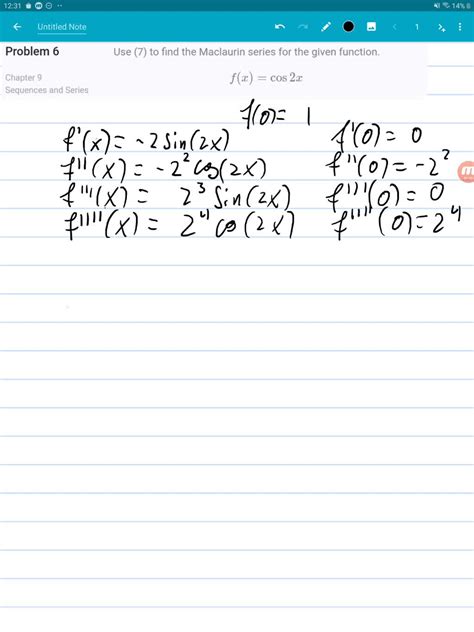 12:31 14%
← Untitled Note < 1 >
Problem 6 Use (7) to find the Maclaurin series for the given function.
Chapter 9 f(x) = cos 2x
Sequences and Series
f(0) = 1
f'(x) = -2 sin(2x) f'(0) = 0
f''(x) = -2² cos(2x) f''(0) = -2²
f'''(x) = 2³ sin(2x) f'''(0) = 0
f''''(x) = 2⁴ co(2x) f''''(0) = 2⁴